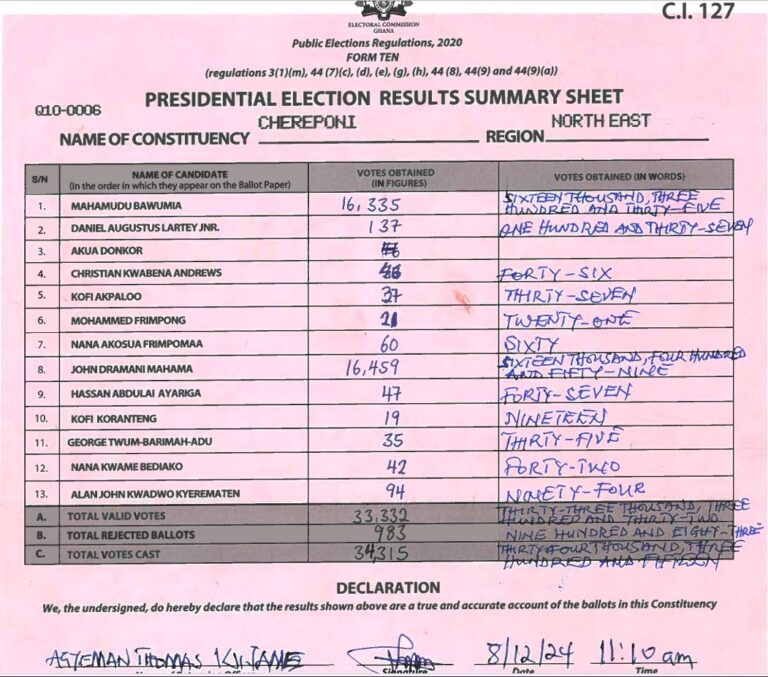 C.I. 127
ELECTORAL COMMISSION
GHANA
Public Elections Regulations, 2020
FORM TEN
(regulations 3(1)(m), 44 (7)(c), (d), (e), (g), (h), 44 (8), 44(9) and 44(9)(a))
PRESIDENTIAL ELECTION RESULTS SUMMARY SHEET
Q10-0006
NAME OF CONSTITUENCY CHEREPONI REGION NORTH EAST
S/N NAME OF CANDIDATE (In the order in which they appear on the Ballot Paper) VOTES OBTAINED (IN FIGURES) VOTES OBTAINED (IN WORDS)
1. MAHAMUDU BAWUMIA 16,335 SIXTEEN THOUSAND, THREE HUNDRED AND THIRTY-FIVE
2. DANIEL AUGUSTUS LARTEY JNR. 137 ONE HUNDRED AND THIRTY-SEVEN
3. AKUA DONKOR
4. CHRISTIAN KWABENA ANDREWS FORTY-SIX
5. KOFI AKPALOO 37 THIRTY-SEVEN
6. MOHAMMED FRIMPONG 21 TWENTY-ONE
7. NANA AKOSUA FRIMPOMAA 60 SIXTY
8. JOHN DRAMANI MAHAMA 16,459 SIXTEEN THOUSAND, FOUR HUNDRED AND FIFTY-NINE
9. HASSAN ABDULAI AYARIGA 47 FORTY-SEVEN
10. KOFI KORANTENG 19 NINETEEN
11. GEORGE TWUM-BARIMAH-ADU 35 THIRTY-FIVE
12. NANA KWAME BEDIAKO 42 FORTY-TWO
13. ALAN JOHN KWADWO KYEREMATEN 94 NINETY-FOUR
A. TOTAL VALID VOTES 33,332 THIRTY-THREE THOUSAND, THREE HUNDRED AND THIRTY-TWO
B. TOTAL REJECTED BALLOTS 983 NINE HUNDRED AND EIGHTY-THREE
C. TOTAL VOTES CAST 34,315 THIRTY FOUR THOUSAND, THREE HUNDRED AND FIFTEEN
DECLARATION
We, the undersigned, do hereby declare that the results shown above are a true and accurate account of the ballots in this Constituency
THOMAS 8/12/24 11:10 am
Signature Date Time